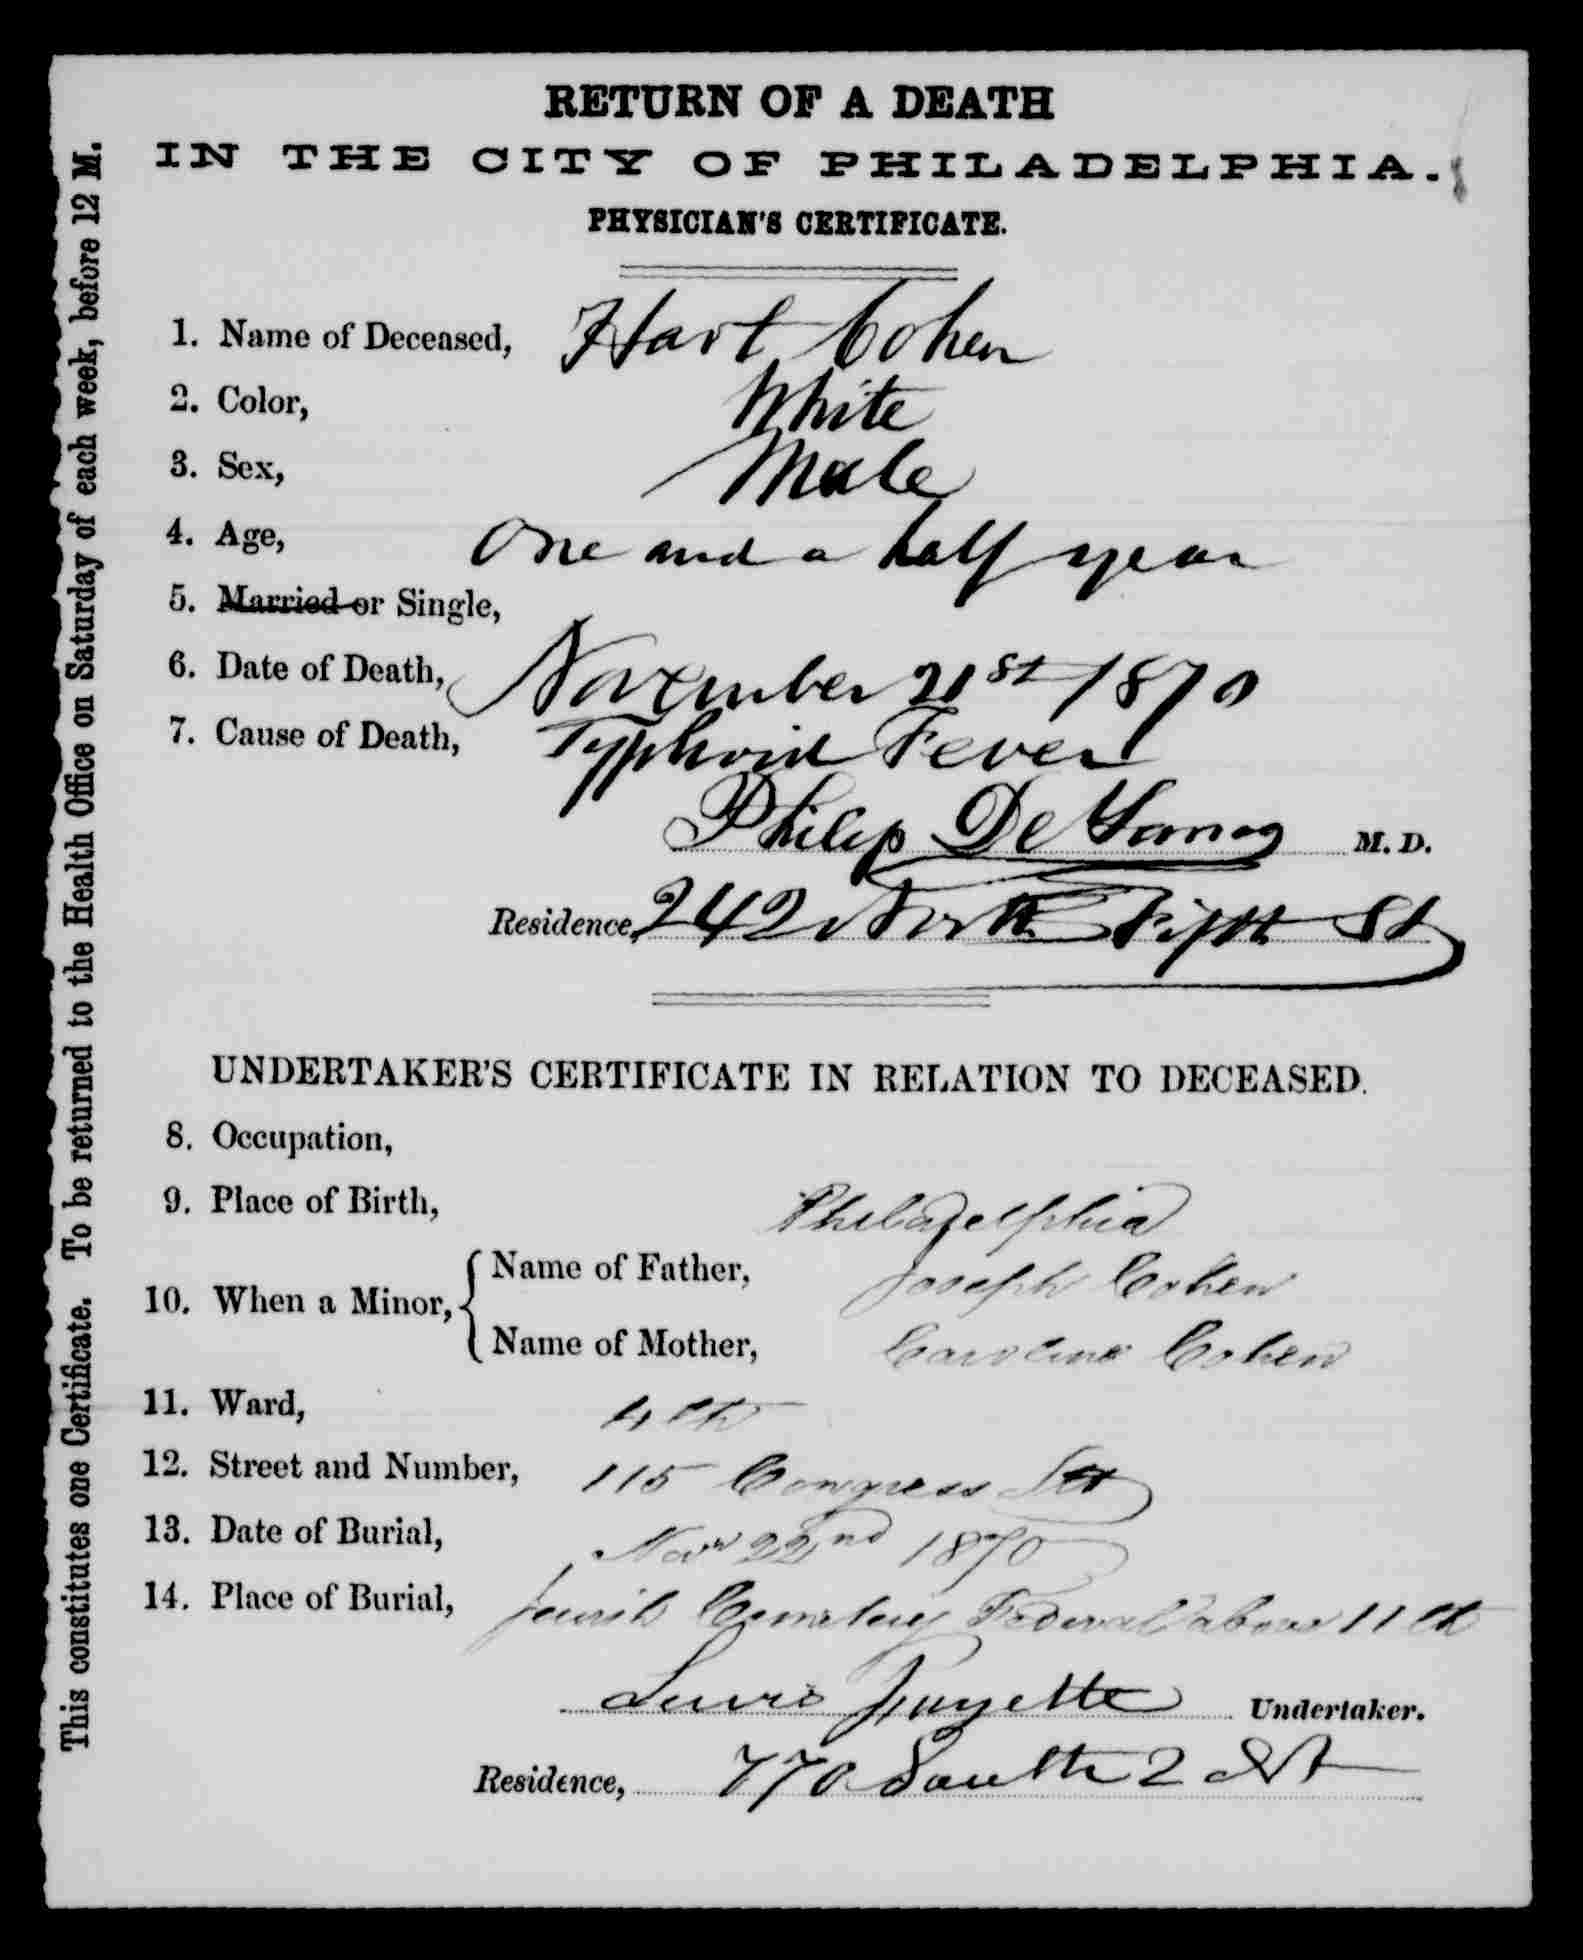 RETURN OF A DEATH
IN THE CITY OF PHILADELPHIA.
PHYSICIAN'S CERTIFICATE.
1. Name of Deceased, Hart Cohen
2. Color, White
3. Sex, Male
4. Age, One and a half year
5. Married or Single,
6. Date of Death, November 21st 1870
7. Cause of Death, Typhoid Fever
Philip De Young M. D.
Residence, 242 North Fifth St
UNDERTAKER'S CERTIFICATE IN RELATION TO DECEASED.
8. Occupation,
9. Place of Birth, Philadelphia
10. When a Minor,
Name of Father, Joseph Cohen
Name of Mother, Caroline Cohen
11. Ward, 4th
12. Street and Number, 115 Congress St
13. Date of Burial, Nov 22nd 1870
14. Place of Burial, Jewish Cemetery Federal above 11th
Lewis Undertaker.
Residence, 770 South 2 St
This constitutes one Certificate. To be returned to the Health Office on Saturday of each week, before 12 M.